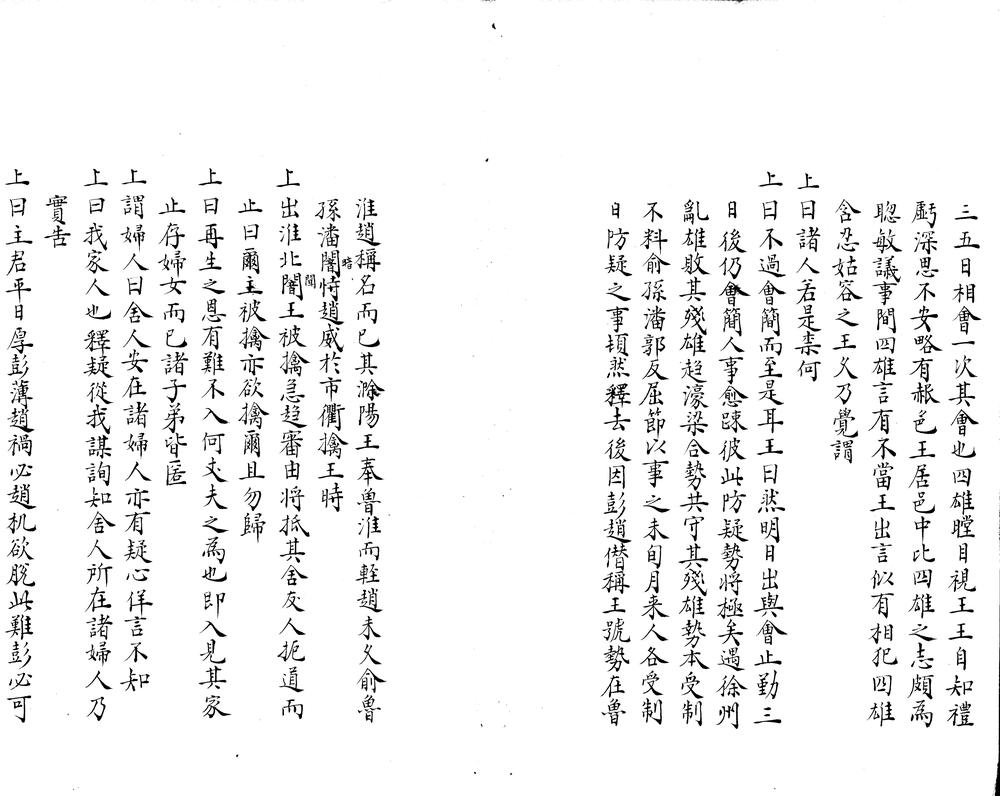 三五日相會一次其會也四雄瞠目視王王自知禮
虧深思不安略有赧色王居邑中比四雄之志頗為
聰敏議事間四雄言有不當王出言似有相犯四雄
含忍姑容之王乆乃覺謂
上曰諸人若是柰何
上曰不過會簡而至是耳王曰然明日出與會止勤三
日後仍會簡人事愈踈彼此防疑勢將極矣遇徐州
亂雄敗其殘雄趋濠梁合勢共守其殘雄勢本受制
不料俞孫潘郭反屈節以事之未旬月来人各受制
日防疑之事頓然釋去後因彭趙僭稱王號勢在魯
淮趙稱名而已其滁陽王奉魯淮而輕趙未乆俞魯
孫潘闇恃趙威於市衢擒王時
暗
上出淮北闇王被擒急趋審由将抵其舍友人扼道而
聞
止曰爾主被擒亦欲擒爾且勿歸
上曰再生之恩有難不入何丈夫之為也即入見其家
止存婦女而已諸子弟皆匿
上謂婦人曰舍人安在諸婦人亦有疑心佯言不知
上曰我家人也釋疑從我謀詢知舍人所在諸婦人乃
實告
上曰主君平日厚彭薄趙禍必趙机欲脫此難彭必可